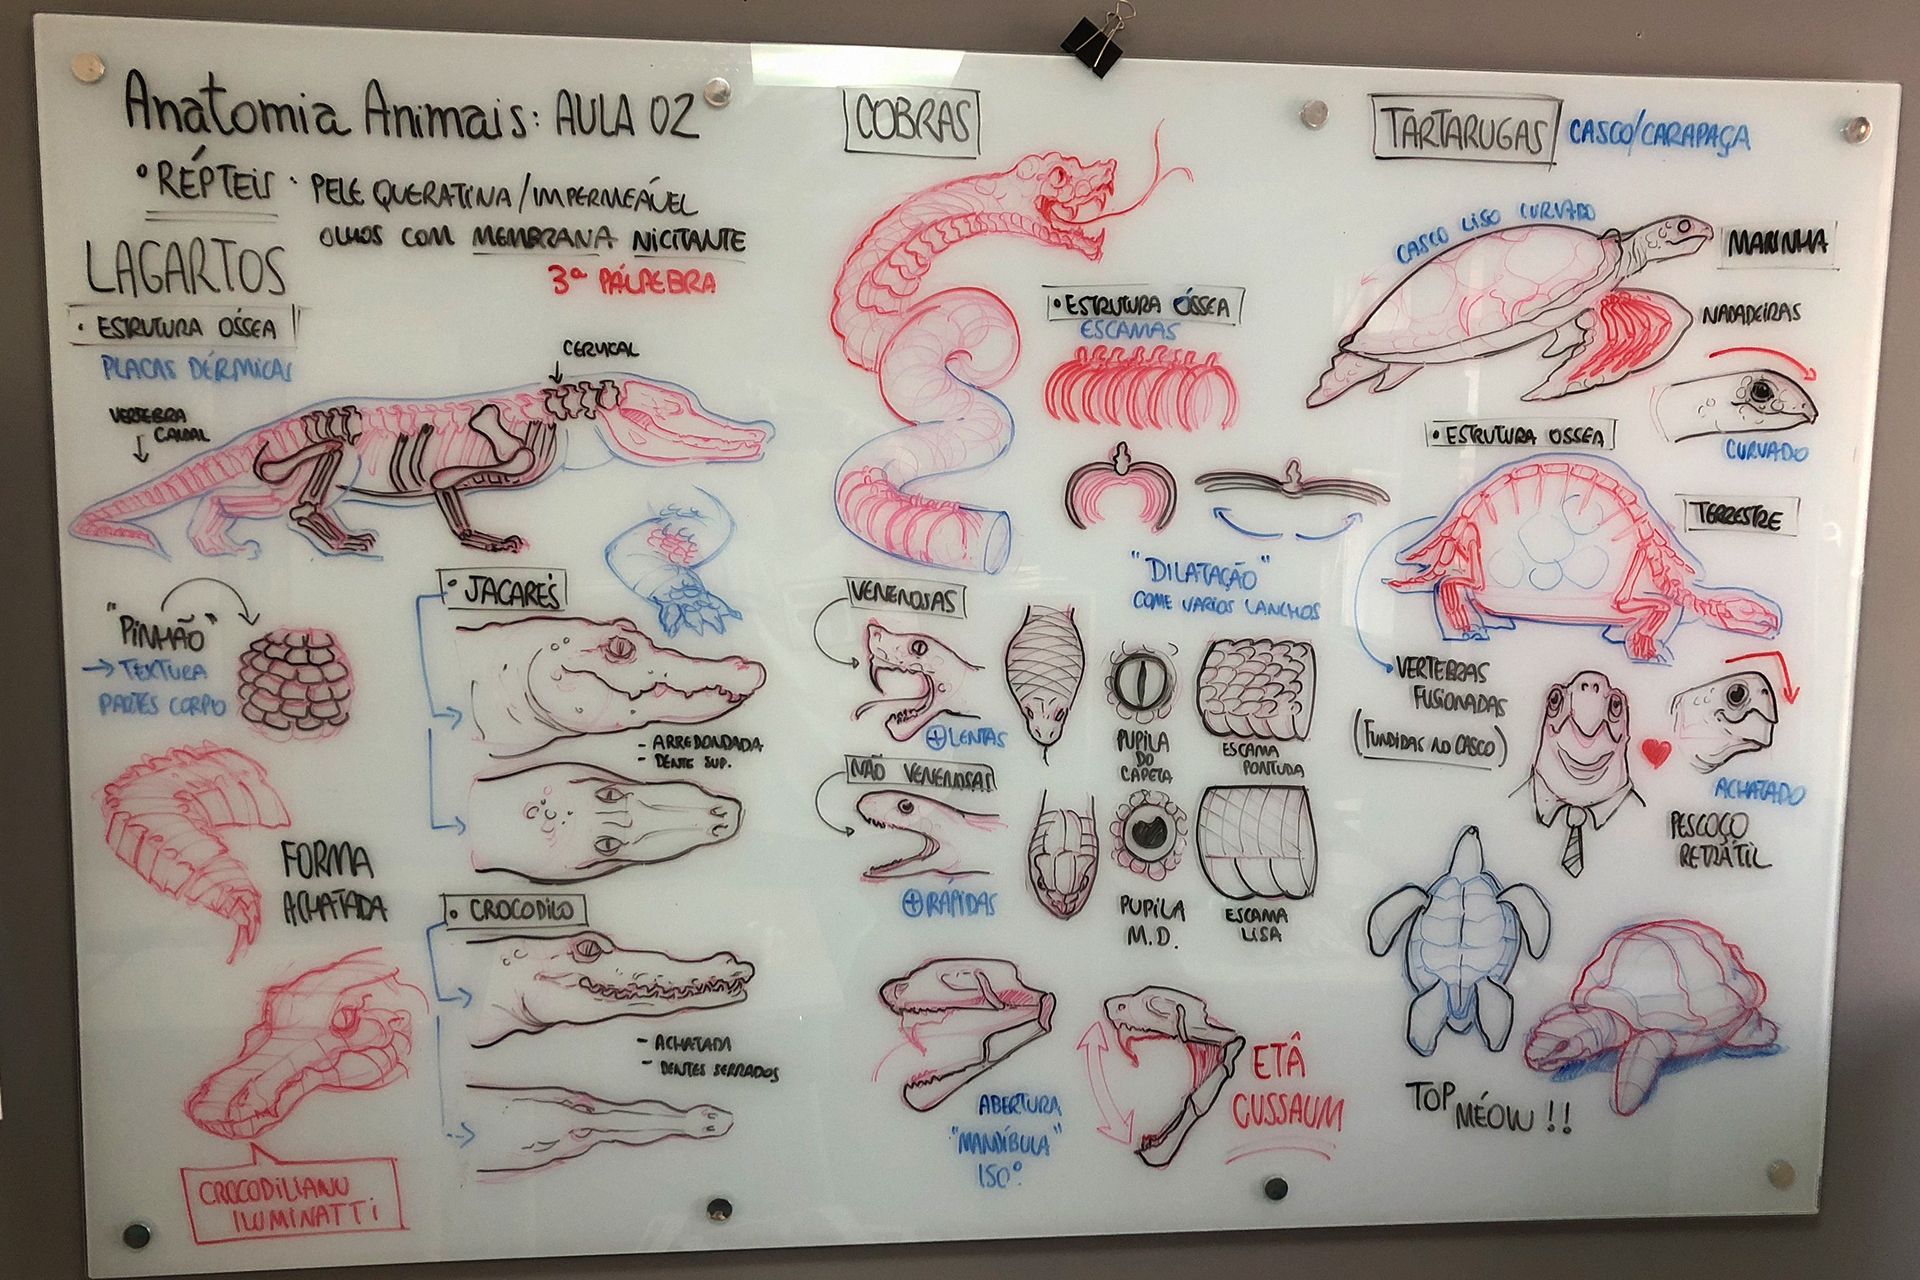 Anatomia Animais: AULA 02
• RÉPTEIS · PELE QUERATINA/IMPERMEÁVEL
OLHOS COM MEMBRANA NICITANTE
3ª PÁLPEBRA
LAGARTOS
• ESTRUTURA ÓSSEA
PLACAS DÉRMICAS
CERVICAL
VERTEBRA
CAUDAL
"PINHÃO"
→ TEXTURA
PARTES CORPO
FORMA
ACHATADA
CROCODILIANO
ILUMINATTI
• JACARÉS
- ARREDONDADA
- DENTE SUP.
• CROCODILO
- ACHATADA
- DENTES SERRADOS
COBRAS
• ESTRUTURA ÓSSEA
ESCAMAS
"DILATAÇÃO"
COME VARIOS LANCHOS
VENENOSAS
+ LENTAS
PUPILA
DO
CAPETA
ESCAMA
PONTUDA
NÃO VENENOSAS
+ RÁPIDAS
PUPILA
M.D.
ESCAMA
LISA
ABERTURA
"MANDÍBULA"
150°
ETÂ
GUSSAUM
TARTARUGAS CASCO/CARAPAÇA
CASCO LISO CURVADO
MARINHA
NADADEIRAS
CURVADO
• ESTRUTURA OSSEA
TERRESTRE
VERTEBRAS
FUSIONADAS
(FUNDIDAS NO CASCO)
ACHATADO
PESCOÇO
RETRÁTIL
TOP MÉOW!!